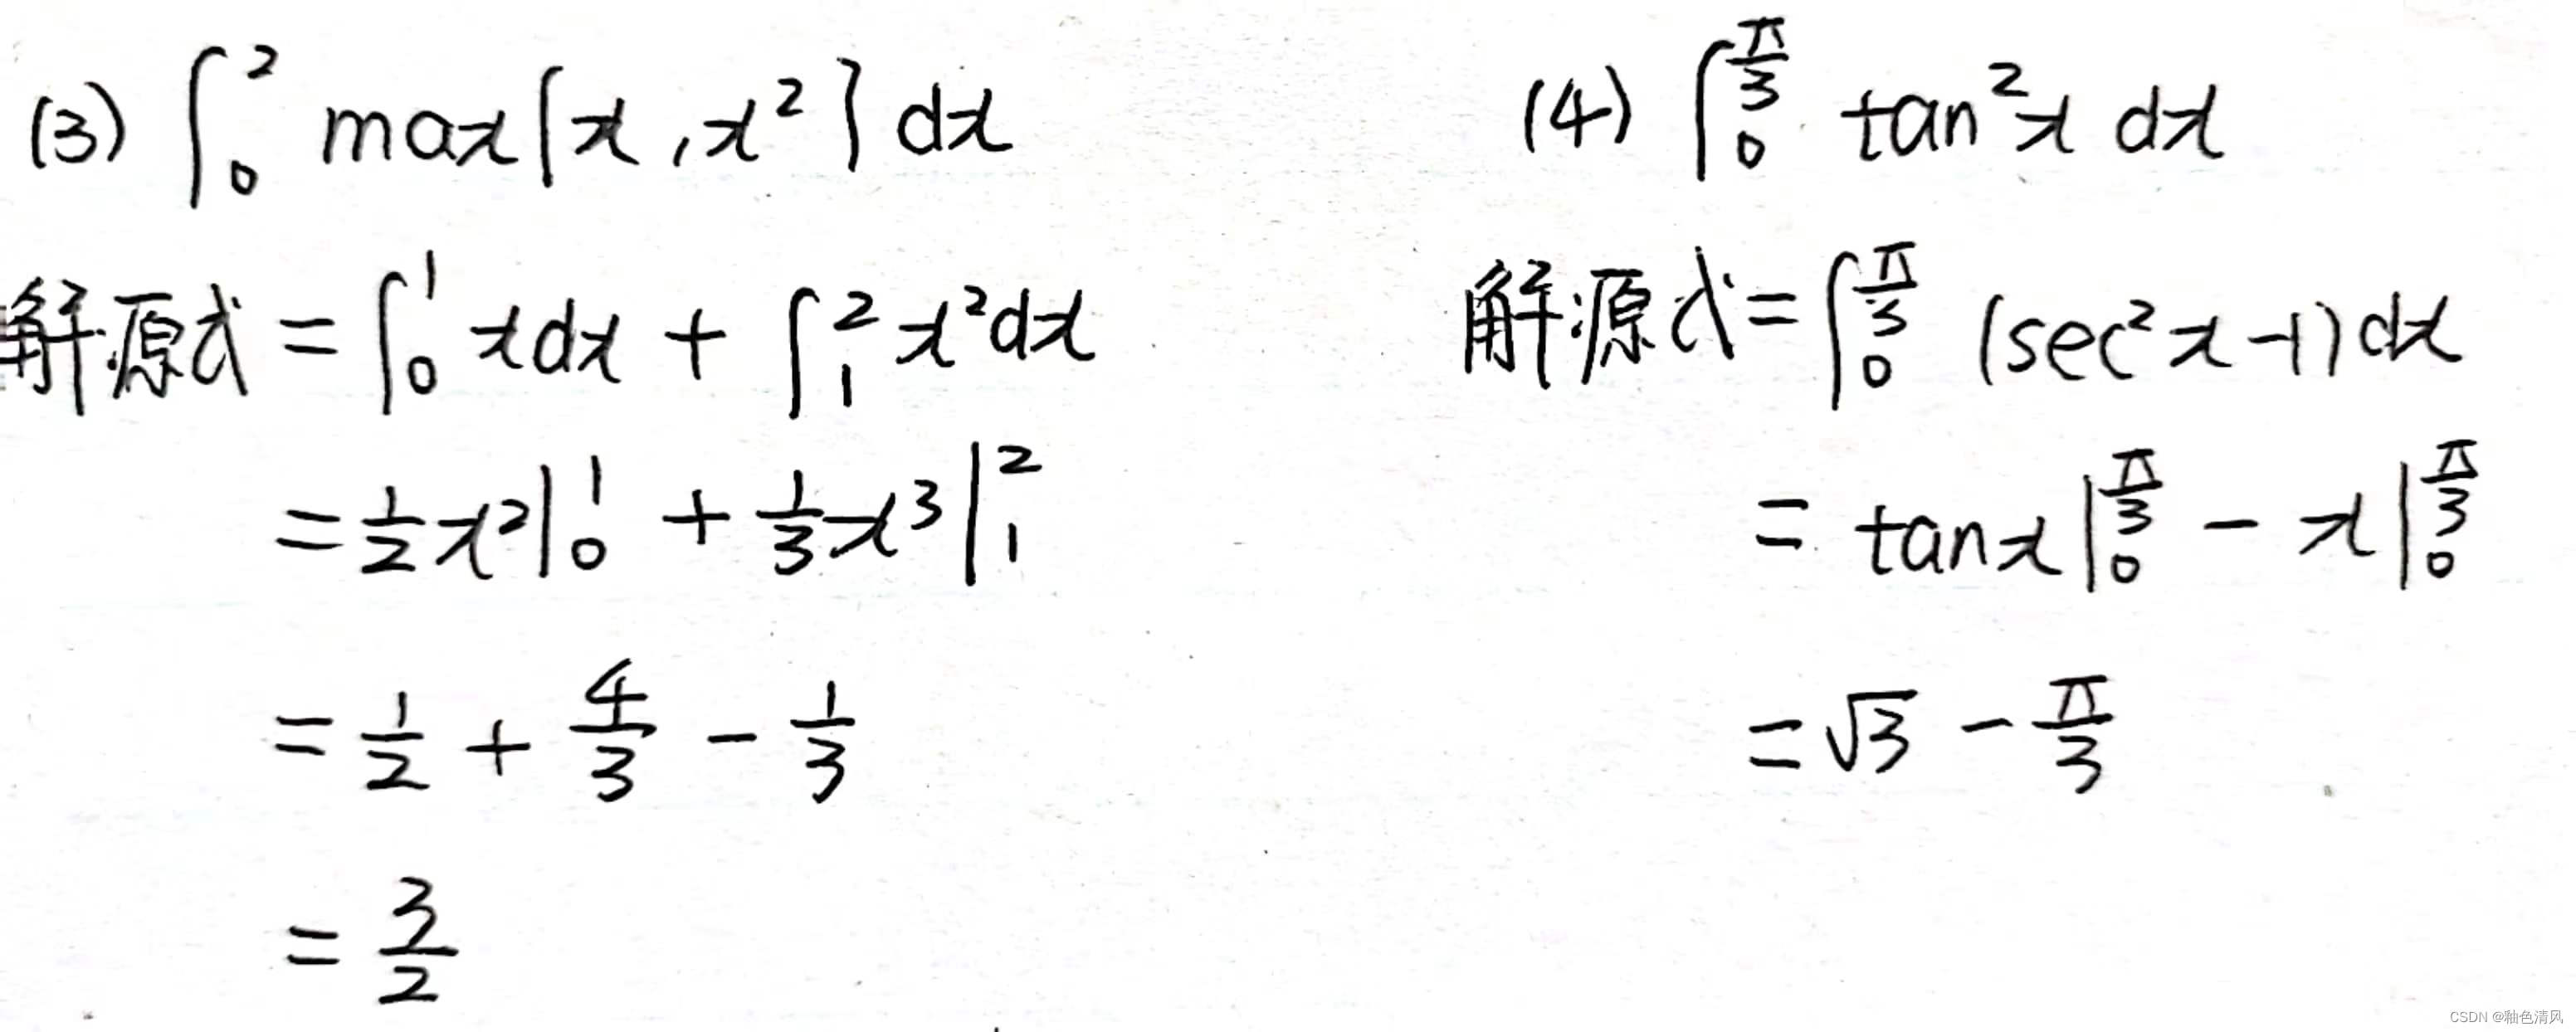 (3) ∫₀² max{x,x²}dx
解源式=∫₀¹xdx+∫₁²x²dx
=½x²|₀¹+⅓x³|₁²
=1/2+4/3-1/3
=3/2
(4) ∫₀^(π/3) tan²x dx
解源式=∫₀^(π/3) (sec²x-1)dx
=tanx|₀^(π/3) - x|₀^(π/3)
=√3-π/3
CSDN @釉色清风